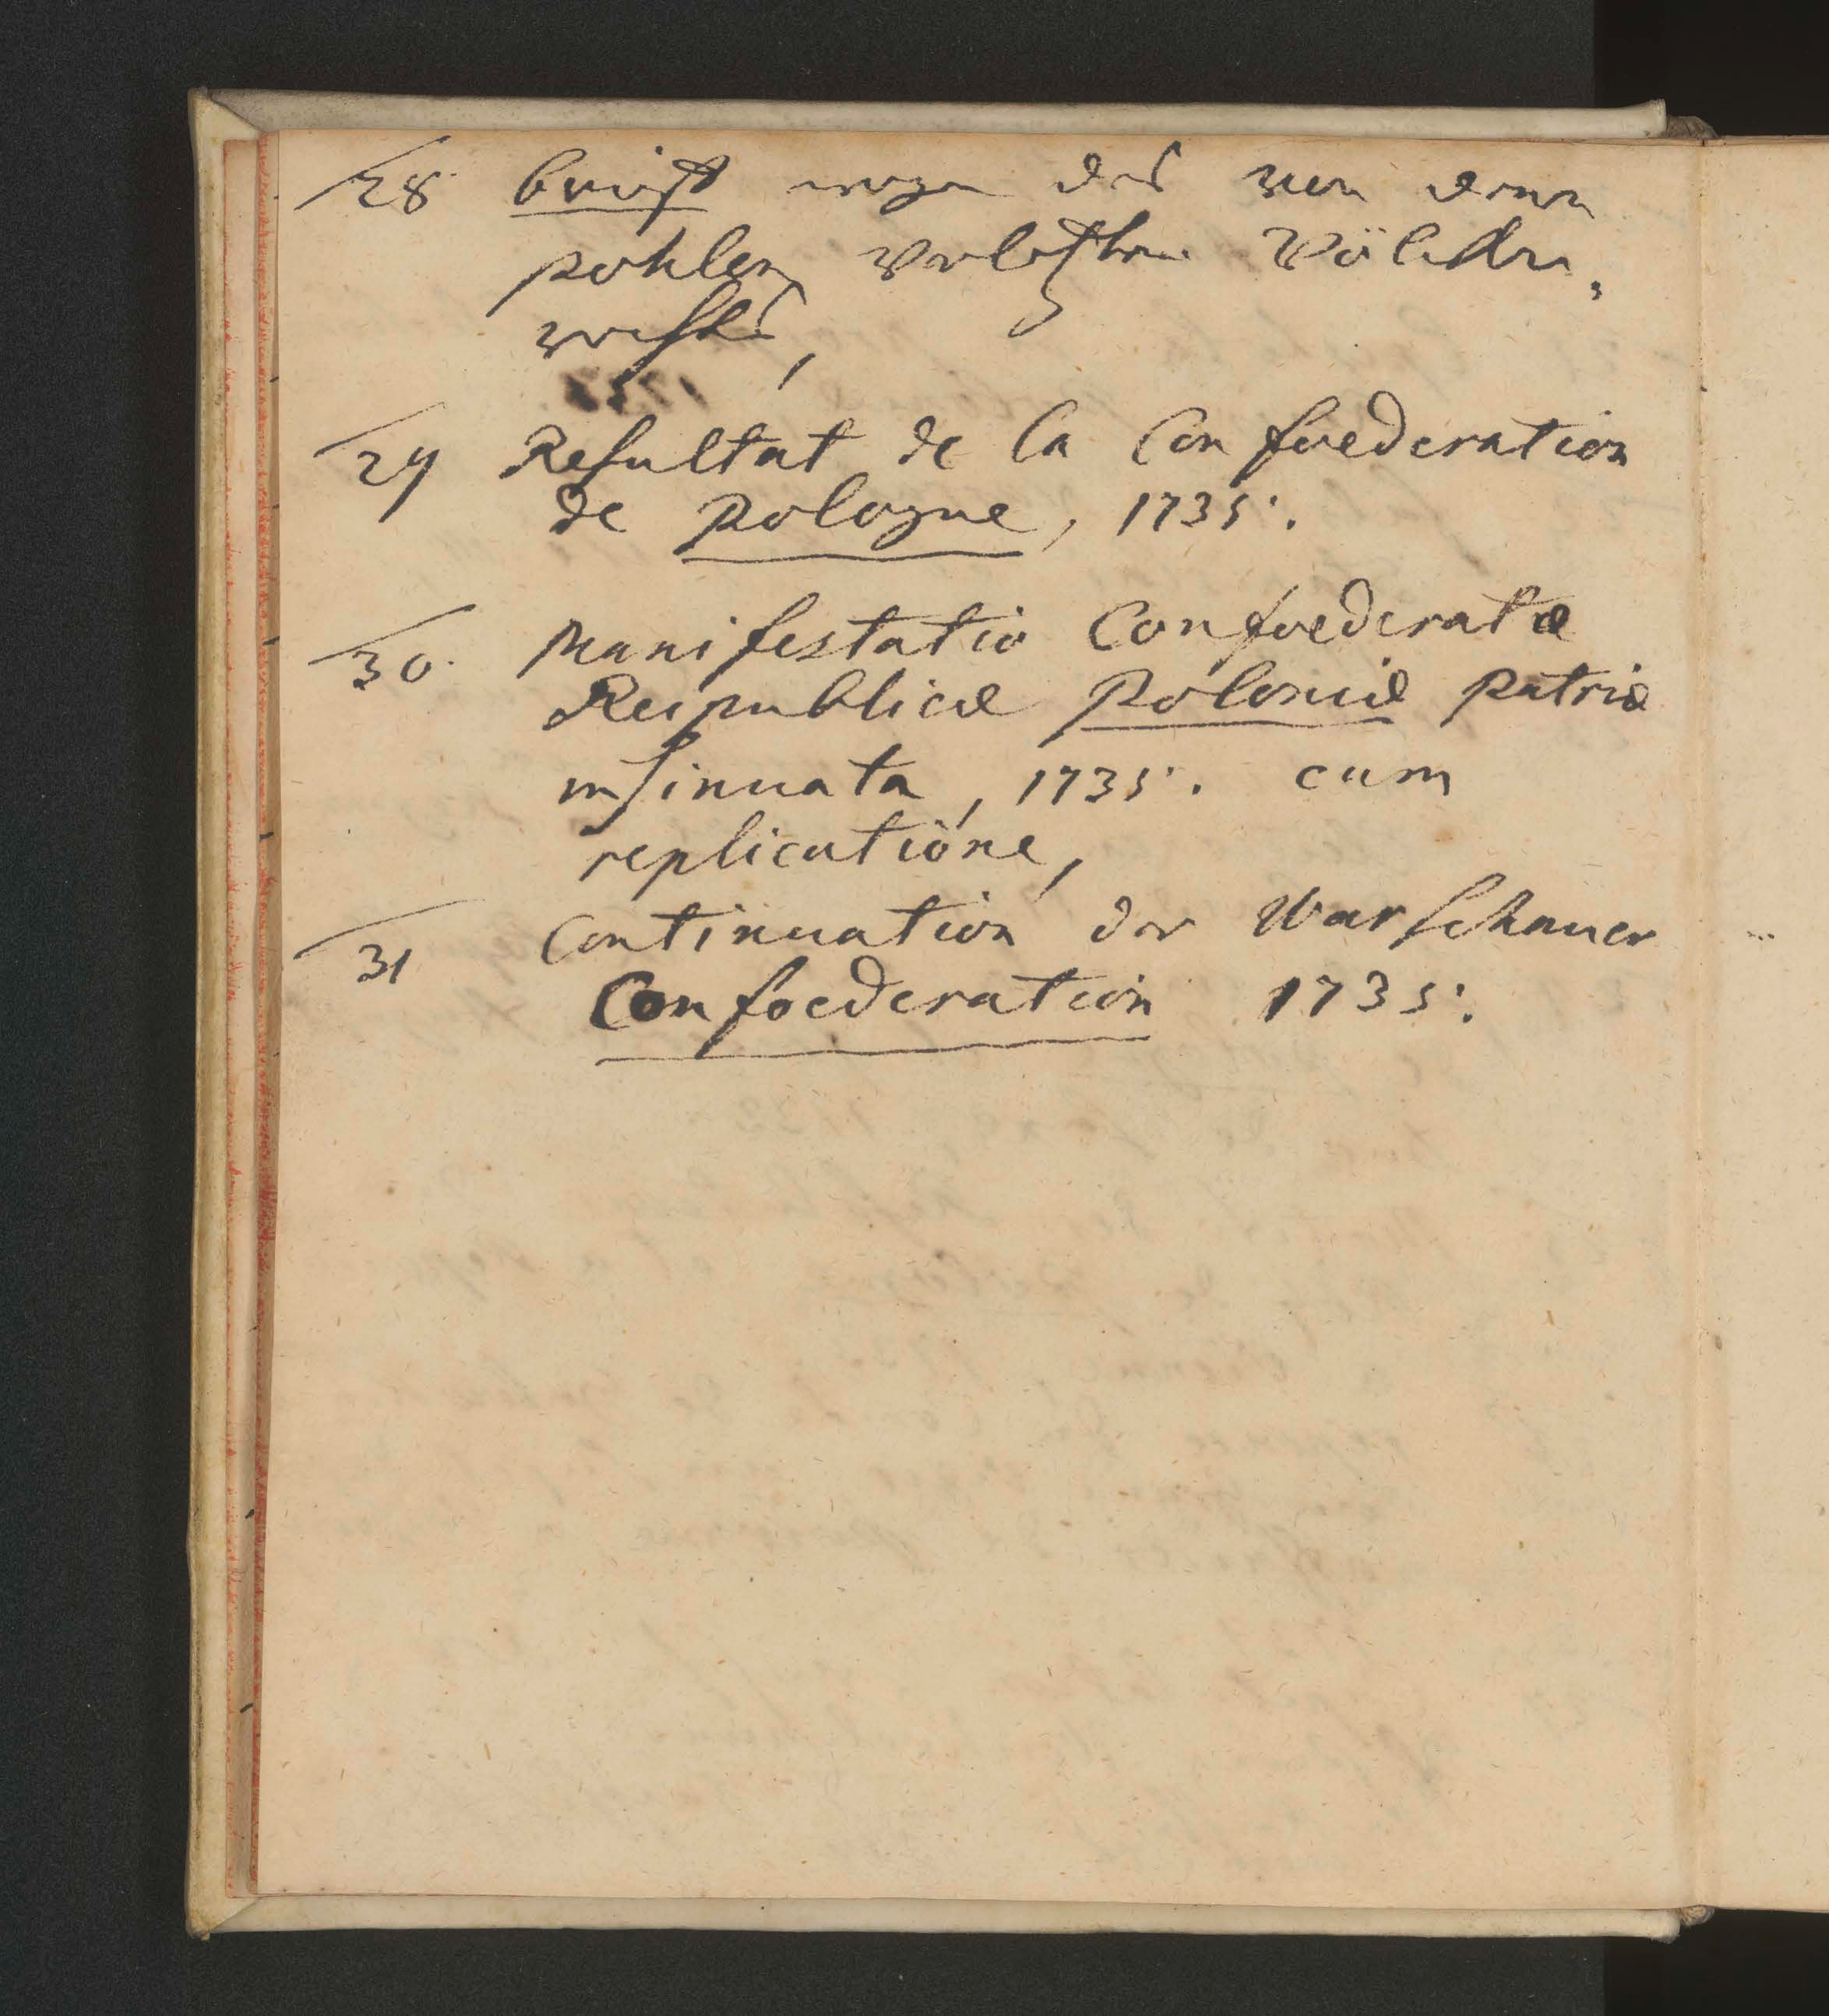 28. Brieff wegen des von denen
pohlen verletzten Völcker,
rechts,
29 Resultat de la Confoederation
de Pologne, 1735.
30. Manifestatio Confoederatæ
Reipublicæ Poloniæ patriæ
insinuata, 1735. cum
replicatione,
31 Continuation der Warschauer
Confoederation 1735.